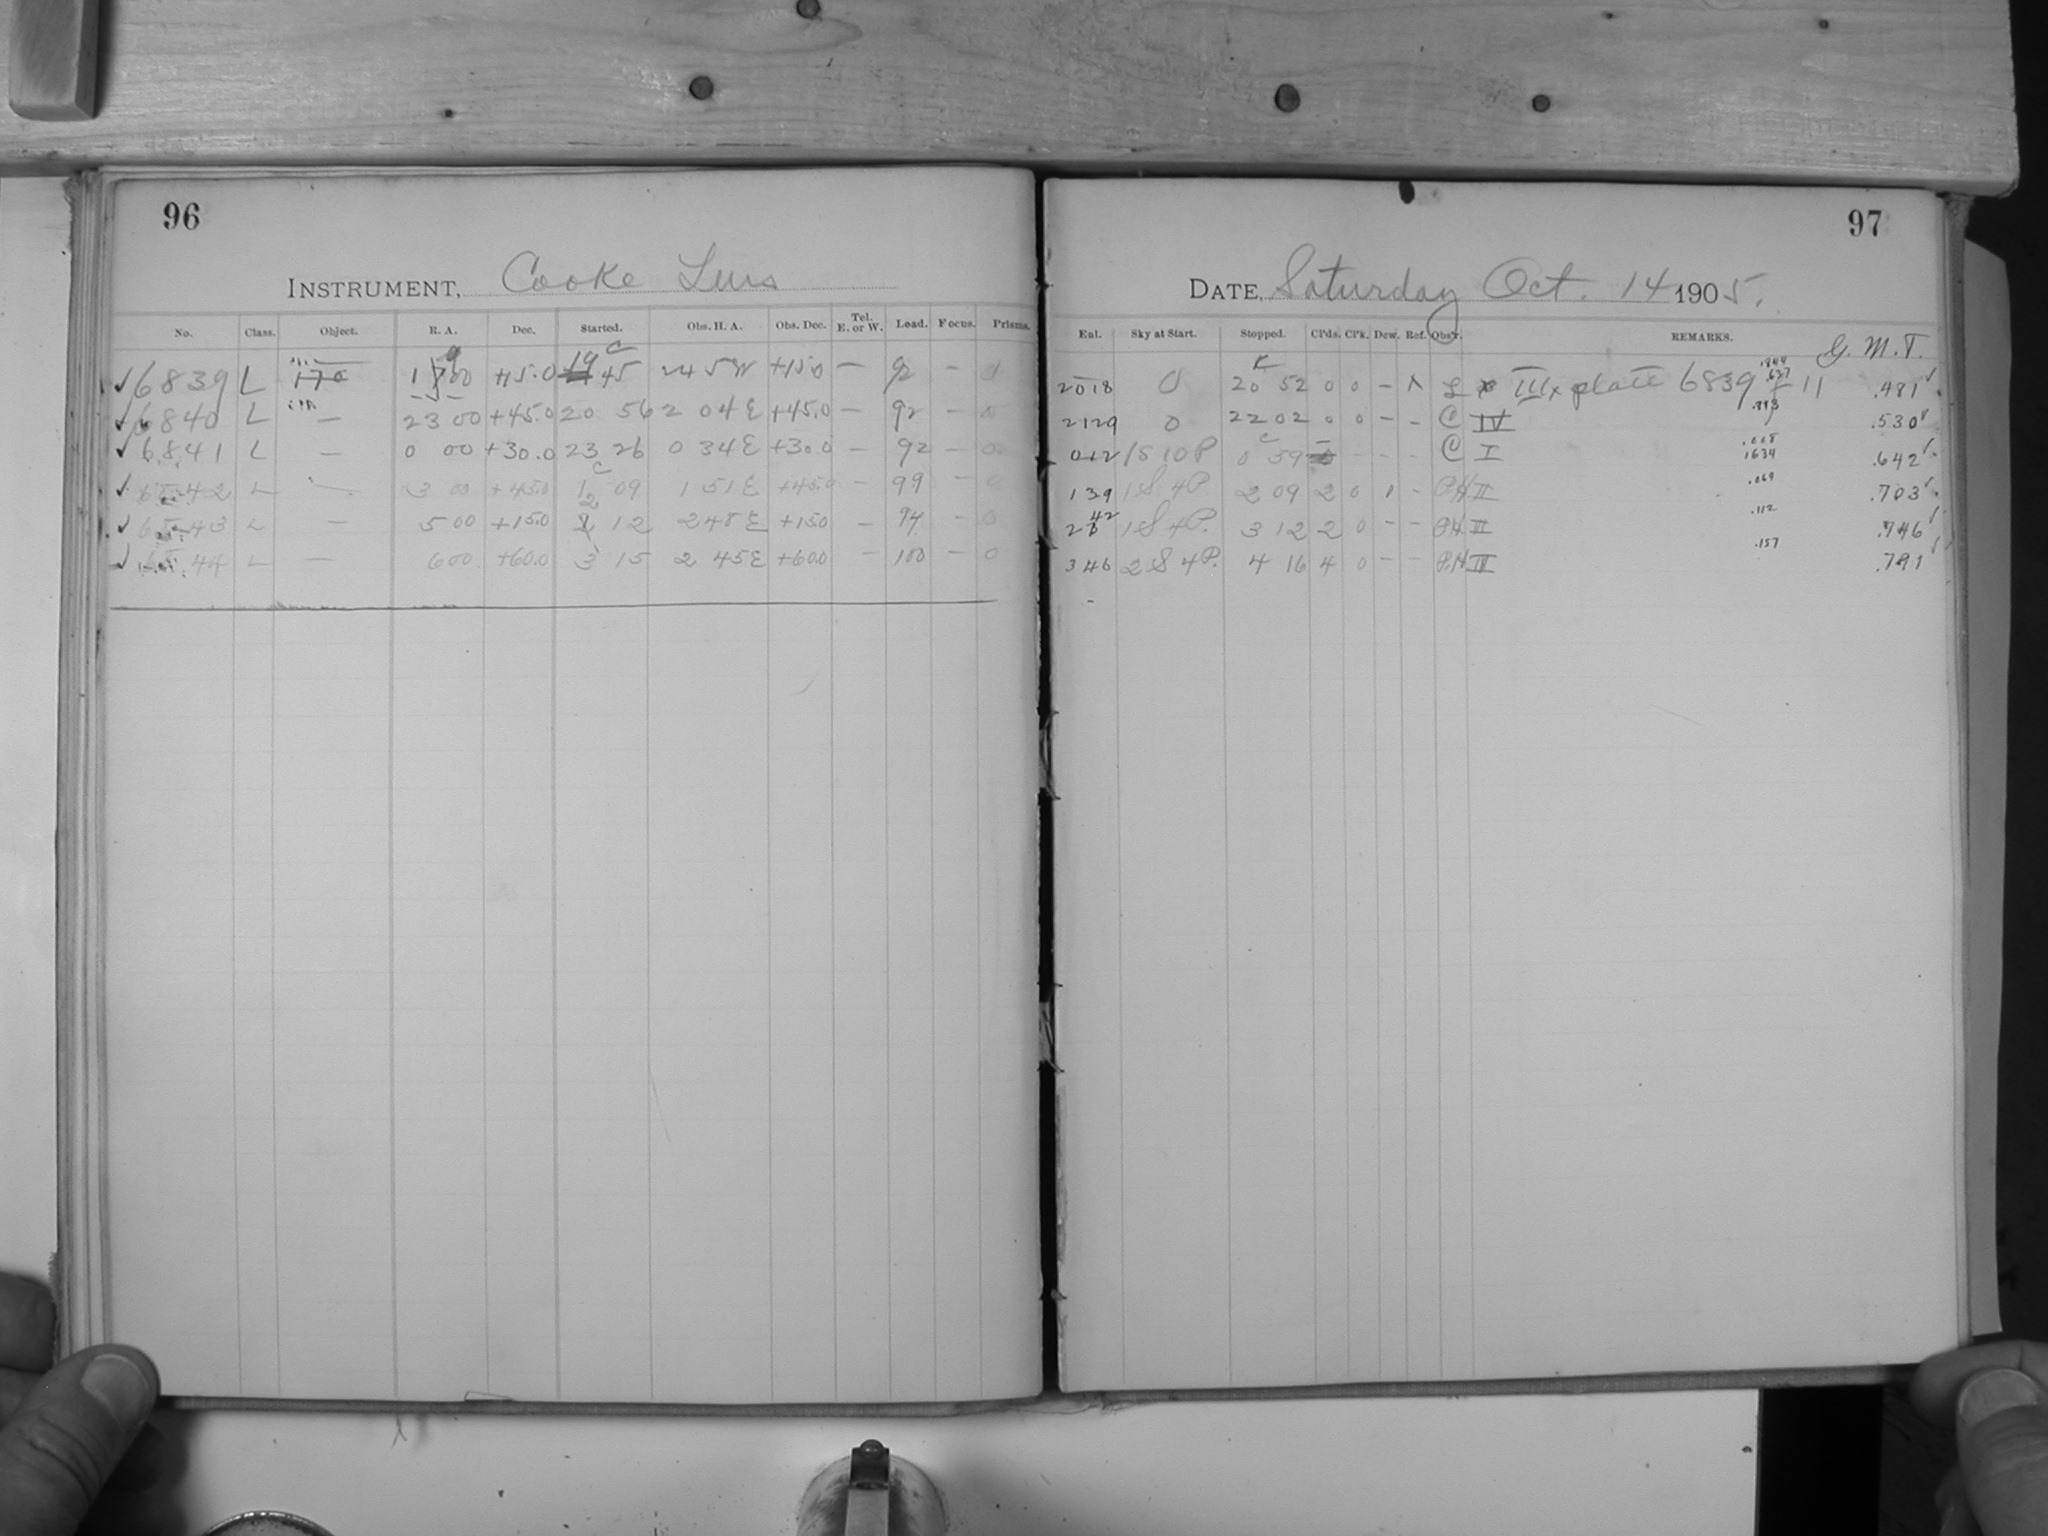 96
INSTRUMENT, Cooke Lens
No. Class. Object. R. A. Dec. Started. Obs. H. A. Obs. Dec. Tel. E. or W. Load. Focus. Prisms.
✓6839 L +15.0 19 45 2 45W +15.0 — 92 — 0
✓6840 L — 23 00 +45.0 20 56 2 04E +45.0 — 92 — 0
✓6841 L — 0 00 +30.0 23 26 0 34E +30.0 — 92 — 0
✓ 42 L — 3 00 +45.0 1 09 1 51E +45.0 — 99 — 0
✓ 43 L — 5 00 +15.0 2 12 2 48E +15.0 — 94 — 0
✓ 44 L — 6 00 +60.0 3 15 2 45E +60.0 — 100 — 0
97
DATE, Saturday Oct. 14 1905.
Enl. Sky at Start. Stopped. Cl'ds. Cl'k. Dew. Ref. Obs'r. REMARKS.
G. M. T.
2018 0 20 52 0 0 — L III x plate 6839 11 .481✓
2129 0 22 02 0 0 – – C IV .530✓
012 1S 10P 0 39 – – – C I .008 .642✓
139 1S 4P 2 09 2 0 – P.H II .069 .703✓
242 1S 4P. 3 12 2 0 – – P.H III .112 .746✓
346 2S 4P. 4 16 4 0 – – P.H IV .157 .791✓